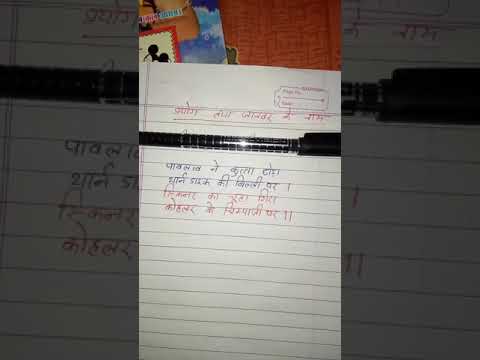 Page No.
Date
प्रयोग तथा जानवर के नाम
पावलाव ने कुत्ता छोड़ा
थार्नडाइक की बिल्ली पर ।
स्किनर का चूहा गिरा
कोहलर के चिम्पांजी पर ।।